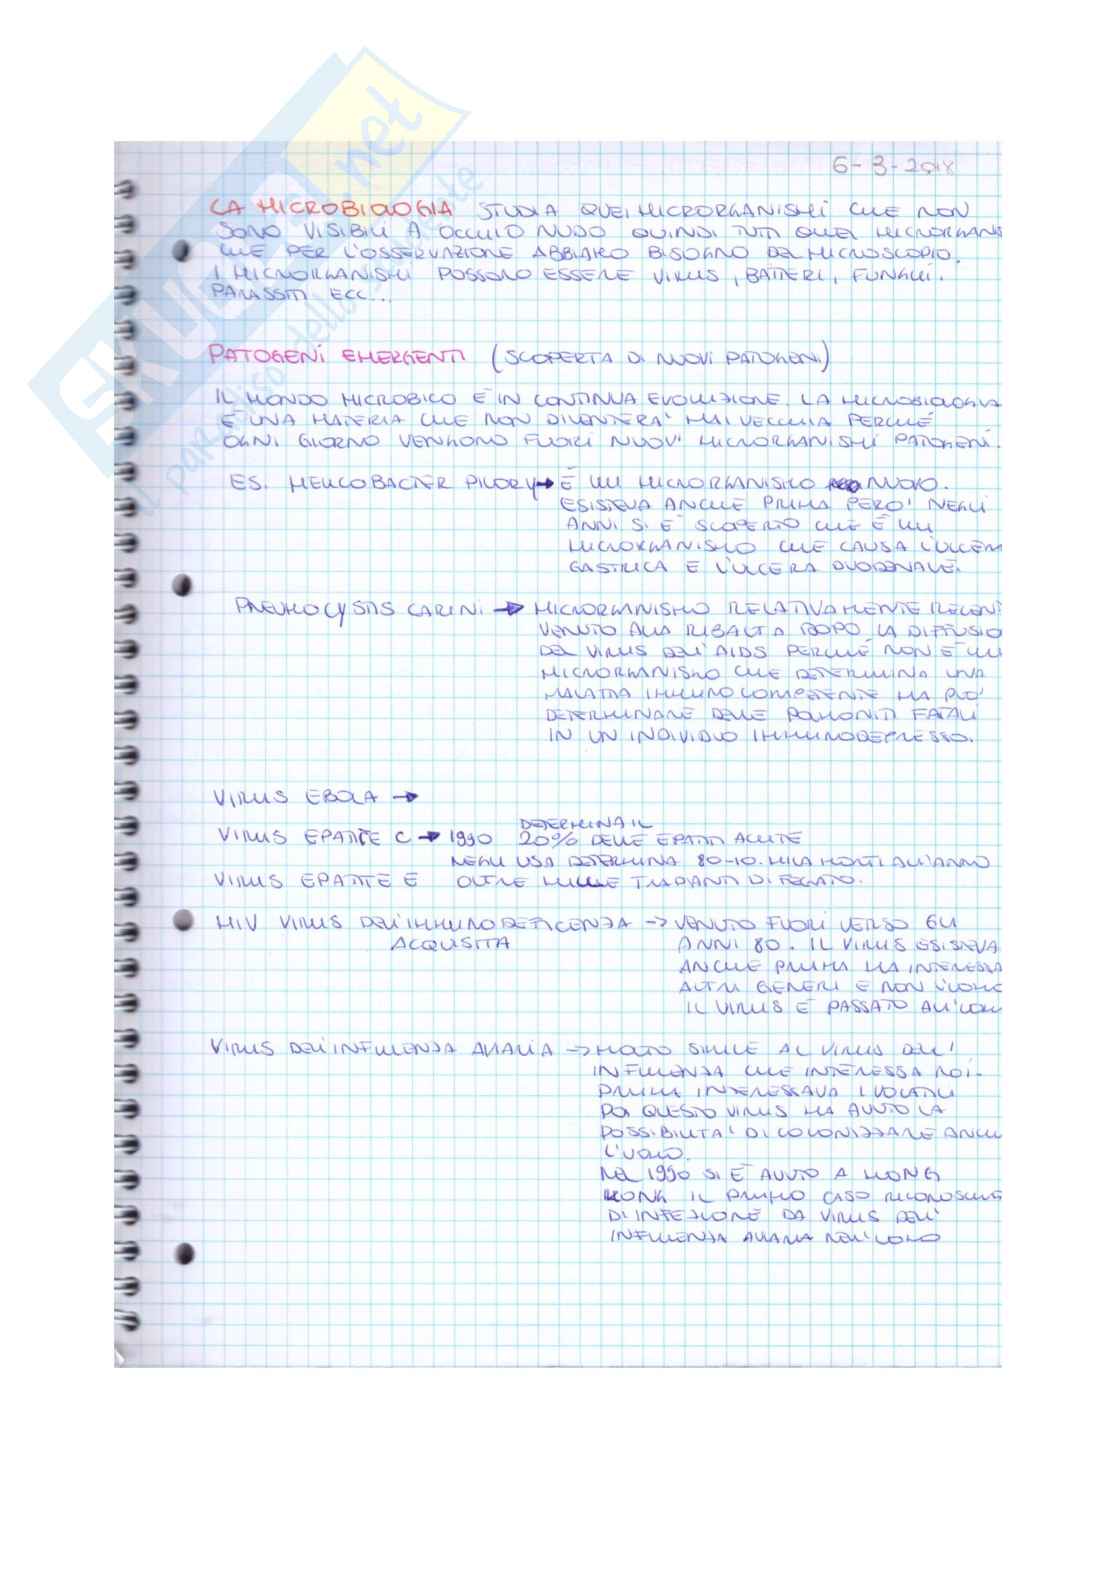 SKUOLA.net
il paradiso dello studente
6-3-2018
LA MICROBIOLOGIA STUDIA QUEI MICRORGANISMI CHE NON
SONO VISIBILI A OCCHIO NUDO QUINDI TUTTI QUEI MICRORGANIS
CHE PER L'OSSERVAZIONE ABBIAMO BISOGNO DEL MICROSCOPIO.
I MICRORGANISMI POSSONO ESSERE VIRUS, BATTERI, FUNGHI.
PARASSITI ECC...
PATOGENI EMERGENTI (SCOPERTA DI NUOVI PATOGENI)
IL MONDO MICROBICO È IN CONTINUA EVOLUZIONE. LA MICROBIOLOGIA
È UNA MATERIA CHE NON DIVENTERA' MAI VECCHIA PERCHÉ
OGNI GIORNO VENGONO FUORI NUOVI MICRORGANISMI PATOGENI.
ES. HELICOBACTER PILORY → È UN MICRORGANISMO NUOVO.
ESISTEVA ANCHE PRIMA PERO' NEGLI
ANNI SI È SCOPERTO CHE È UN
MICRORGANISMO CHE CAUSA L'ULCERA
GASTRICA E L'ULCERA DUODENALE.
PNEUMOCYSTIS CARINI → MICRORGANISMO RELATIVAMENTE RECENT
VENUTO ALLA RIBALTA DOPO LA DIFFUSIO
DEL VIRUS DELL'AIDS PERCHÉ NON È UN
MICRORGANISMO CHE DETERMINA UNA
MALATTIA IMMUNOCOMPETENTE MA PUO'
DETERMINARE DELLE POLMONITI FATALI
IN UN INDIVIDUO IMMUNODEPRESSO.
VIRUS EBOLA →
DETERMINA IL
VIRUS EPATITE C → 1990 20% DELLE EPATITI ACUTE
NEGLI USA DETERMINA 80-10. MILA MORTI ALL'ANNO
VIRUS EPATITE E OLTRE MILLE TRAPIANTI DI FEGATO.
HIV VIRUS DELL'IMMUNODEFICENZA → VENUTO FUORI VERSO GLI
ACQUISITA ANNI 80. IL VIRUS ESISTEVA
ANCHE PRIMA MA INTERESSA
ALTRI GENERI E NON L'UOMO
IL VIRUS È PASSATO ALL'UOM
VIRUS DELL'INFLUENZA AVIARIA → MOLTO SIMILE AL VIRUS DELL'
INFLUENZA CHE INTERESSA NOI.
PRIMA INTERESSAVA I VOLATILI
POI QUESTO VIRUS HA AVUTO LA
POSSIBILITA' DI COLONIZZARE ANCHE
L'UOMO.
NEL 1990 SI È AVUTO A HONG
KONG IL PRIMO CASO RICONOSCIUTO
DI INFEZIONE DA VIRUS DELL'
INFLUENZA AVIARIA NELL'UOMO